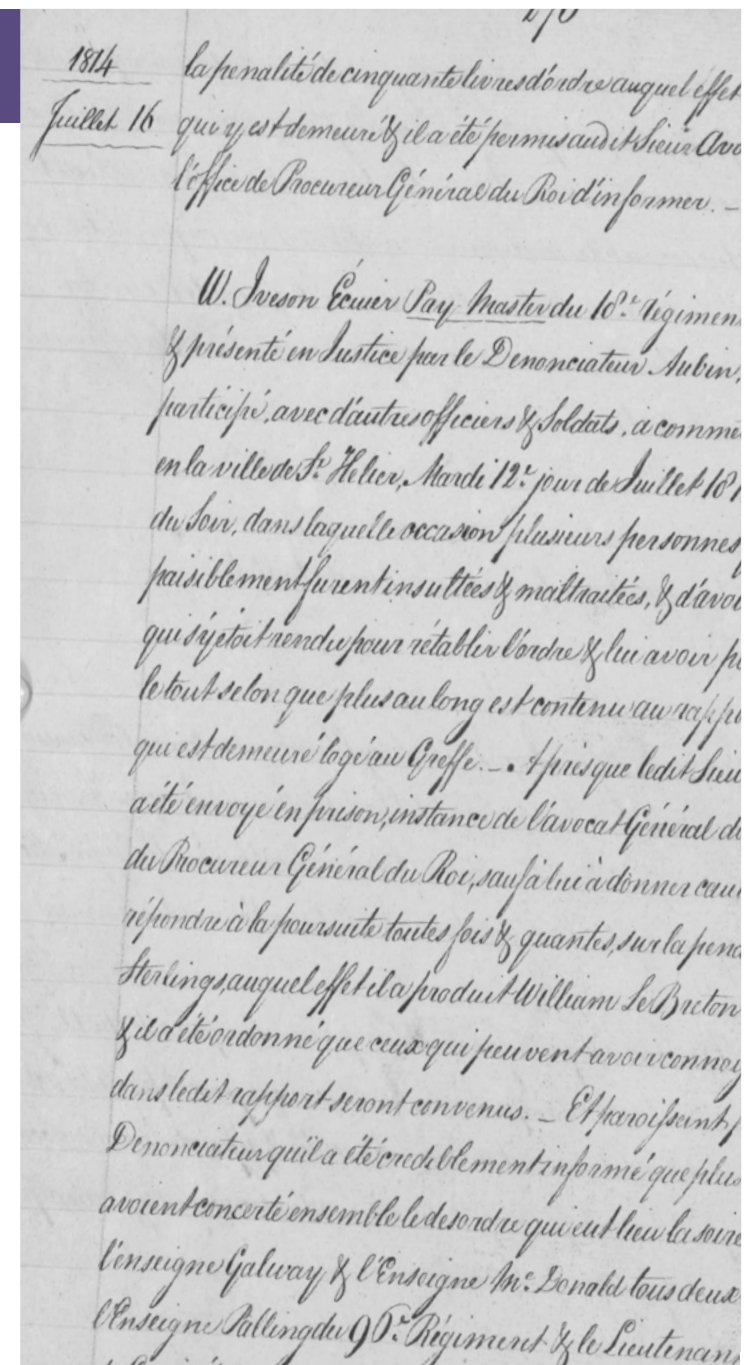 1814
Juillet 16
la penalité de cinquante livres d'ordre auquel effet
qui y est demeuré & il a été permis audit Sieur Avo
l'office de Procureur Général du Roi d'informer. _
W. Iveson Écuier Pay Master du 18.e régimen
& présenté en Justice par le Denonciateur Aubin,
participé, avec d'autres officiers & Soldats, a comme
en la ville de St. Helier, Mardi 12.e jour de Juillet 181
du Soir, dans laquelle occasion plusieurs personnes
paisiblement furent insultées & maltraitées, & d'avoi
qui s'y étoit rendu pour rétablir l'ordre & lui avoir p
le tout selon que plus au long est contenu au rappo
qui est demeuré logé au Greffe. _ . Après que ledit Sieu
a été envoyé en prison, instance de l'avocat Général d
du Procureur Général du Roi, sauf à lui à donner cau
répondre à la poursuite toutes fois & quantes, sur la pena
Sterlings, auquel effet il a produit William Le Breton
& il a été ordonné que ceux qui peuvent avoir connoy
dans ledit rapport seront convenus. _ Et paroissant
Denonciateur qu'il a été crediblement informé que plus
avoient concerté ensemble le desordre qui eut lieu la soiré
l'enseigne Galway & l'Enseigne Mc. Donald tous deux
l'Enseigne Palling du 96.e Régiment & le Lieutenan